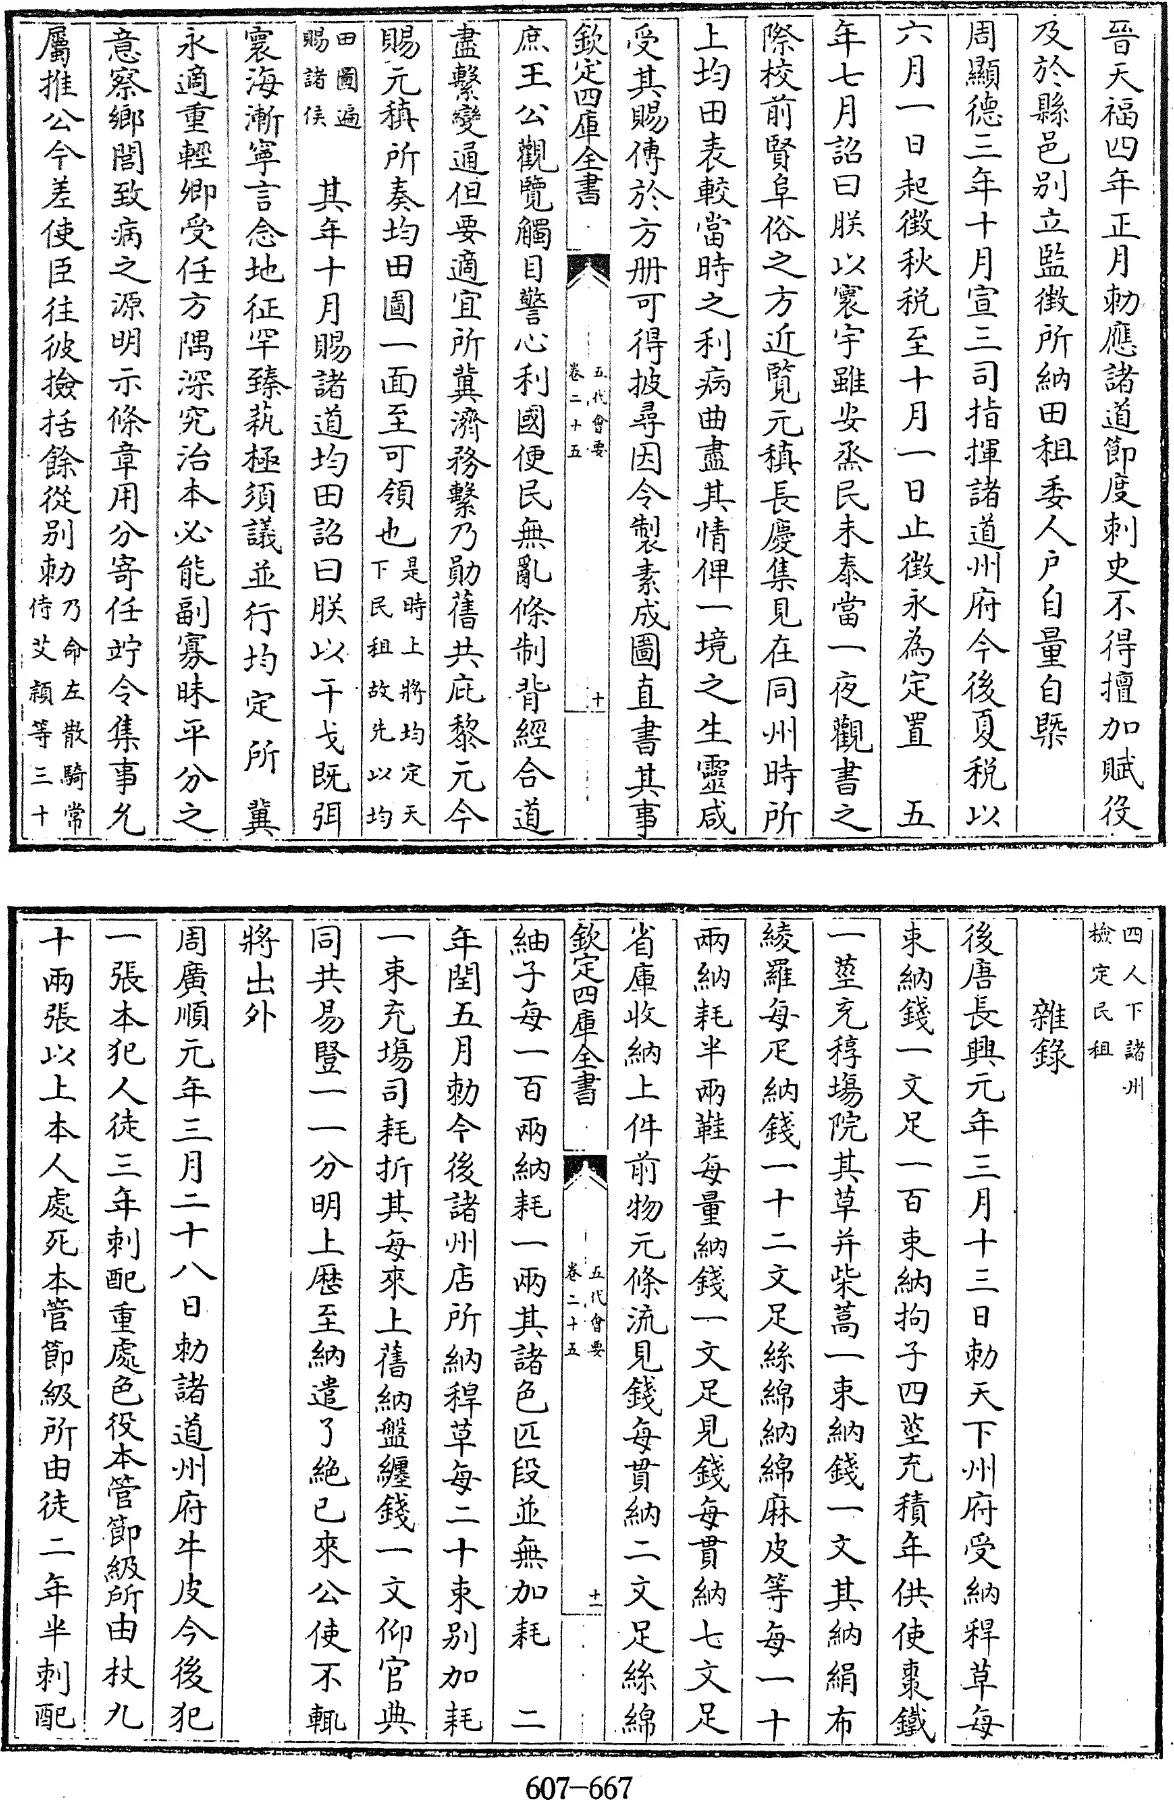 晉天福四年正月勅應諸道節度刺史不得擅加賦役
及於縣邑別立監徴所納田租委人戶自量自槩
周顯德三年十月宣三司指揮諸道州府今後夏稅以
六月一日起徴秋稅至十月一日止徴永為定置　五
年七月詔曰朕以寰宇雖安烝民未泰當一夜觀書之
際校前賢阜俗之方近覽元稹長慶集見在同州時所
上均田表較當時之利病曲盡其情俾一境之生靈咸
受其賜傳於方册可得披尋因令製素成圖直書其事
欽定四庫全書
五代會要
卷二十五
十
庶王公觀覽觸目警心利國便民無亂條制背經合道
盡繫變通但要適宜所冀濟務繫乃勛舊共庇黎元今
賜元稹所奏均田圖一面至可領也是時上將均定天
下民租故先以均
田圖遍
賜諸侯　其年十月賜諸道均田詔曰朕以干戈既弭
寰海漸寧言念地征罕臻執極須議並行均定所冀
永適重輕卿受任方隅深究治本必能副寡昧平分之
意察鄉閭致病之源明示條章用分寄任竚令集事允
屬推公今差使臣往彼撿括餘從別勅乃命左散騎常
侍艾頴等三十
四人下諸州
檢定民租
雜錄
後唐長興元年三月十三日勅天下州府受納稈草每
束納錢一文足一百束納拘子四莖充積年供使棗鐵
一莖充稕塲院其草并柴蒿一束納錢一文其納絹布
綾羅每疋納錢一十二文足絲綿納綿麻皮等每一十
兩納耗半兩鞋每量納錢一文足見錢每貫納七文足
省庫收納上件前物元條流見錢每貫納二文足絲綿
欽定四庫全書
五代會要
卷二十五
十一
紬子每一百兩納耗一兩其諸色匹段並無加耗　二
年閏五月勅今後諸州店所納稈草每二十束別加耗
一束充塲司耗折其每來上舊納盤纏錢一文仰官典
同共易豎一一分明上歴至納遣了絶已來公使不輒
將出外
周廣順元年三月二十八日勅諸道州府牛皮今後犯
一張本犯人徒三年刺配重處色役本管節級所由杖九
十兩張以上本人處死本管節級所由徒二年半刺配
607-667